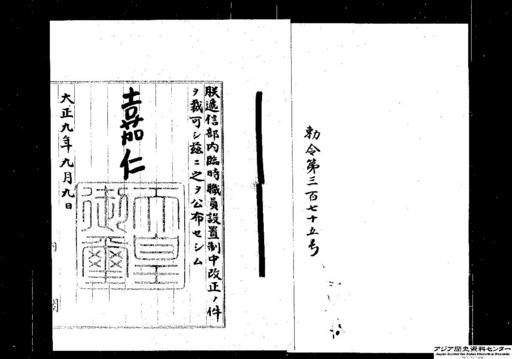 勅令第三百七十五号
朕逓信部内臨時職員設置制中改正ノ件
ヲ裁可シ玆ニ之ヲ公布セシム
嘉仁
天皇御璽
大正九年九月九日
アジア歴史資料センター
Japan Center for Asian Historical Records